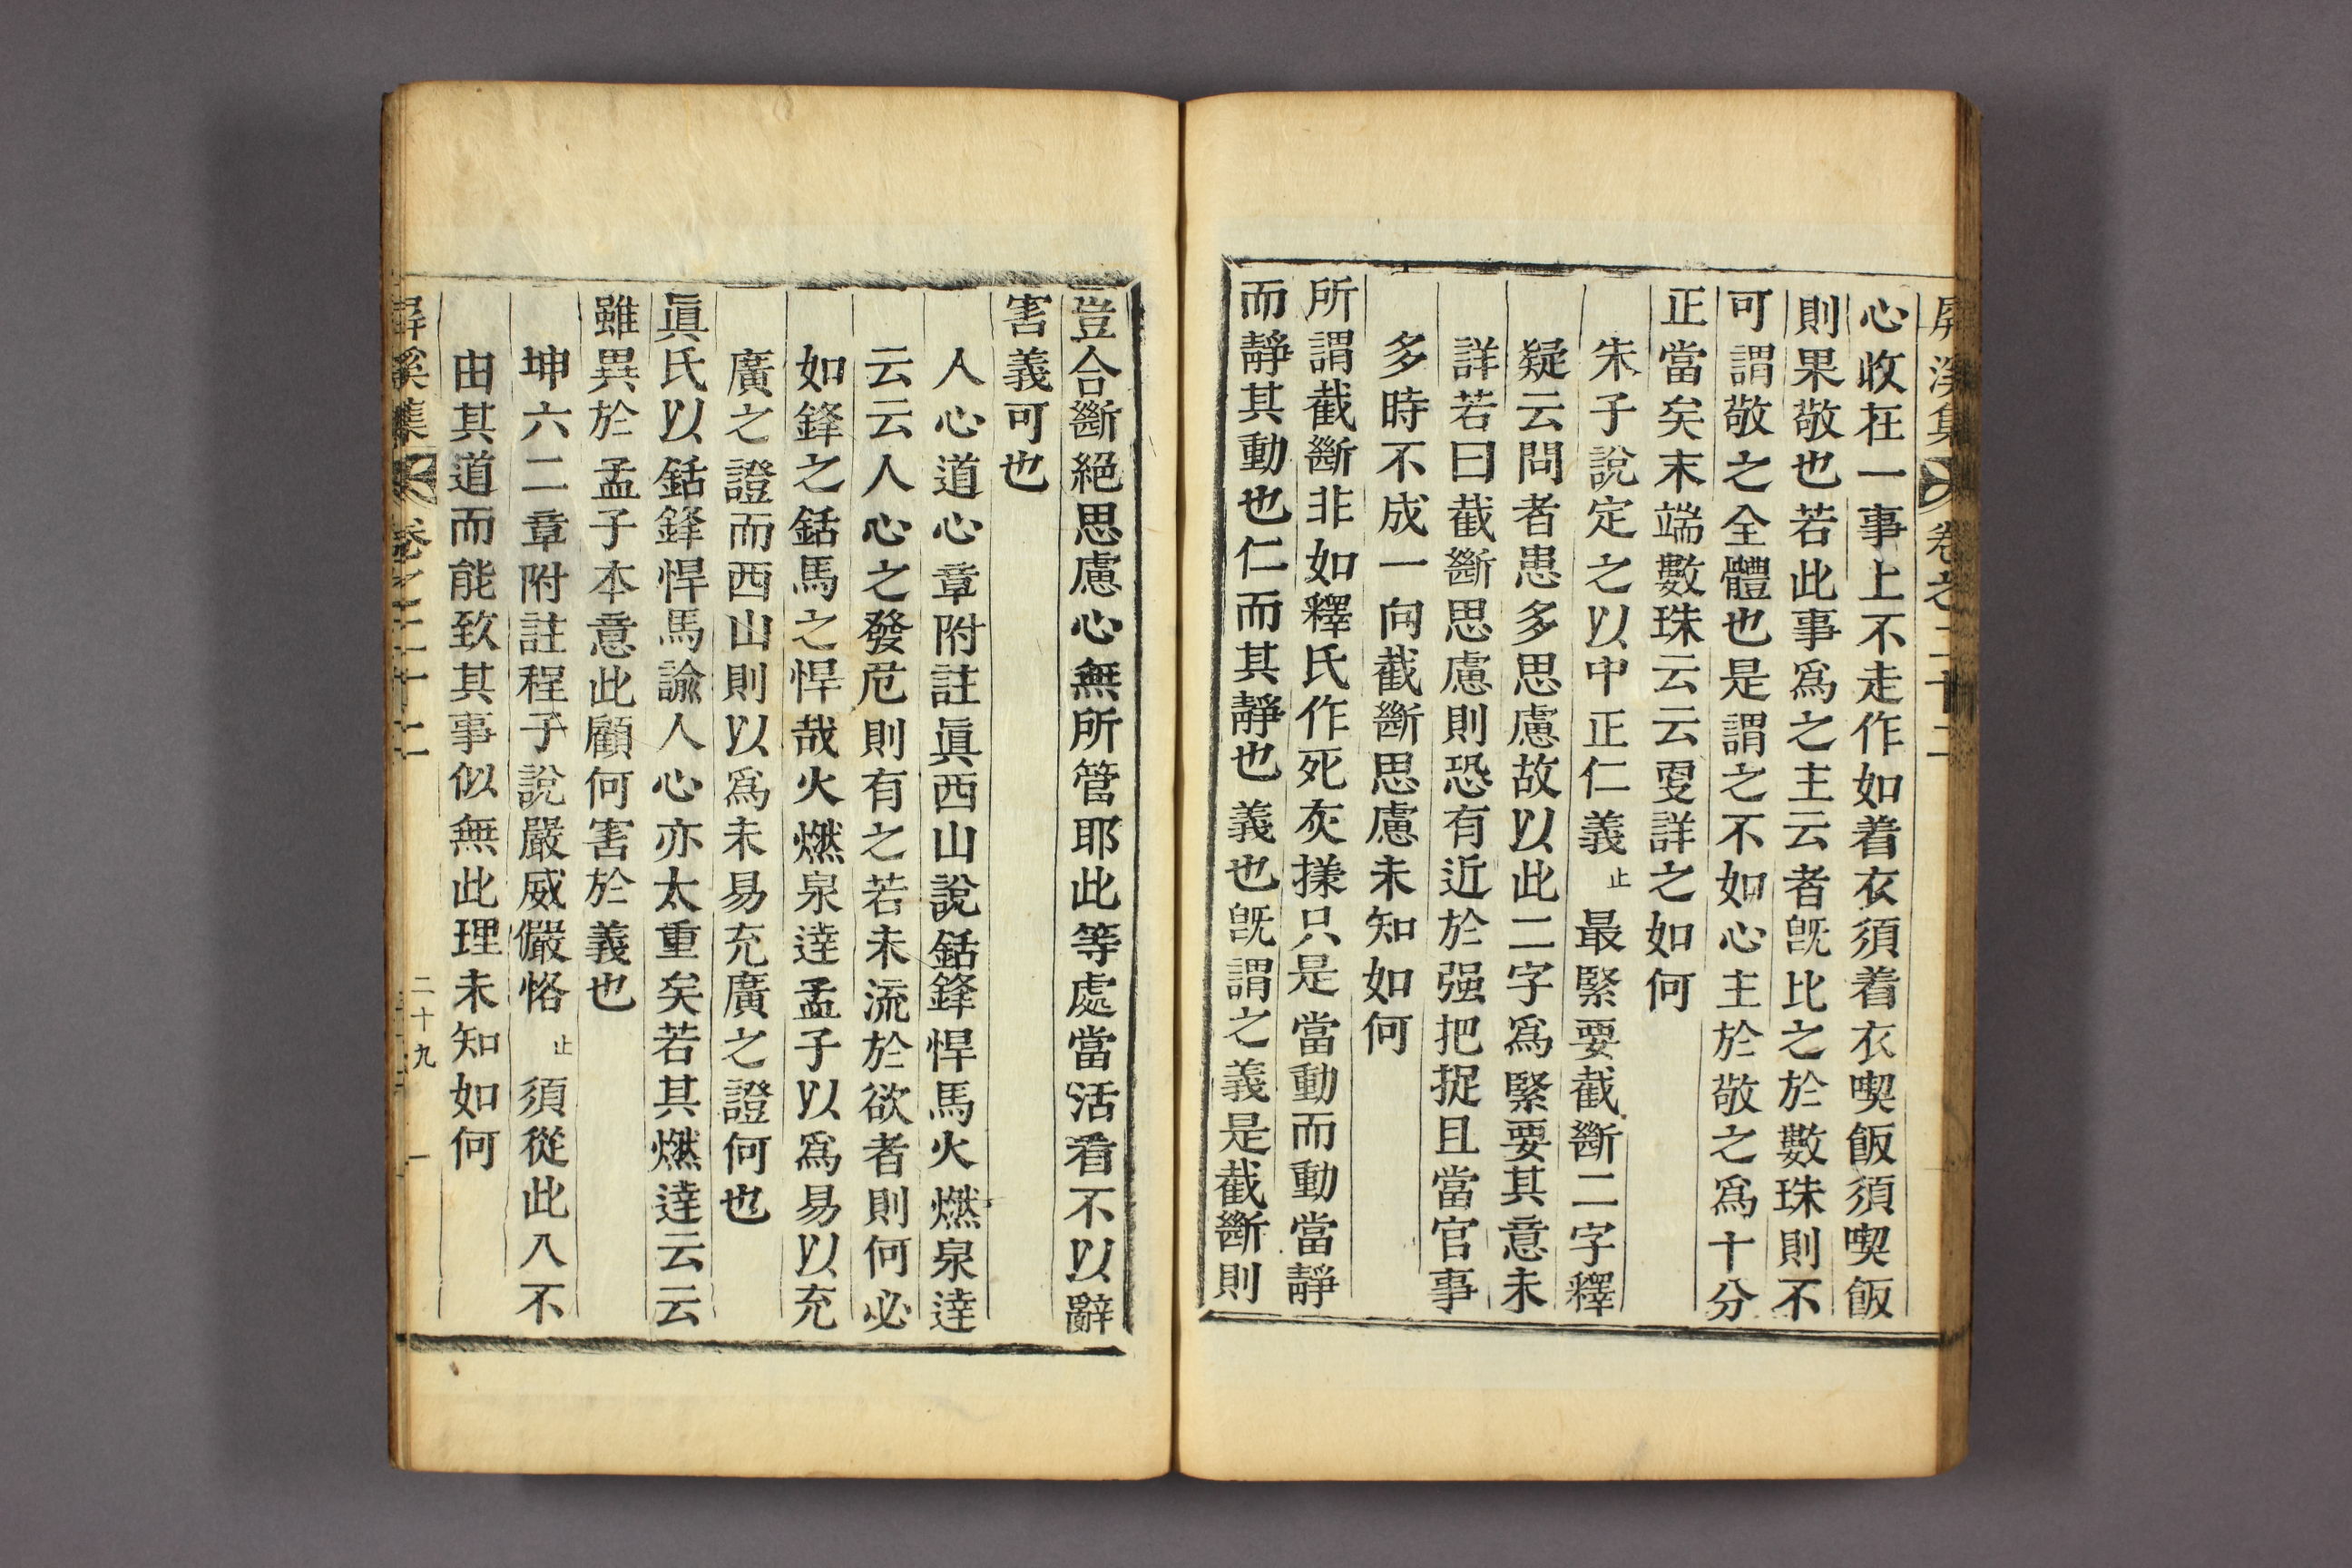 屛溪集 卷之二十二
心收在一事上不走作如着衣須着衣喫飯須喫飯
則果敬也若此事爲之主云者旣比之於數珠則不
可謂敬之全體也是謂之不如心主於敬之爲十分
正當矣末端數珠云云更詳之如何
朱子說定之以中正仁義止最緊要截斷二字釋
疑云問者患多思慮故以此二字爲緊要其意未
詳若曰截斷思慮則恐有近於强把捉且當官事
多時不成一向截斷思慮未知如何
所謂截斷非如釋氏作死灰㨾只是當動而動當靜
而靜其動也仁而其靜也義也旣謂之義是截斷則
豈合斷絕思慮心無所管耶此等處當活看不以辭
害義可也
人心道心章附註眞西山說銛鋒悍馬火燃泉達
云云人心之發危則有之若未流於欲者則何必
如鋒之銛馬之悍哉火燃泉達孟子以爲易以充
廣之證而西山則以爲未易充廣之證何也
眞氏以銛鋒悍馬諭人心亦太重矣若其燃達云云
雖異於孟子本意此顧何害於義也
坤六二章附註程子說嚴威儼恪止須從此八不
由其道而能致其事似無此理未知如何
屛溪集 卷之二十二 二十九